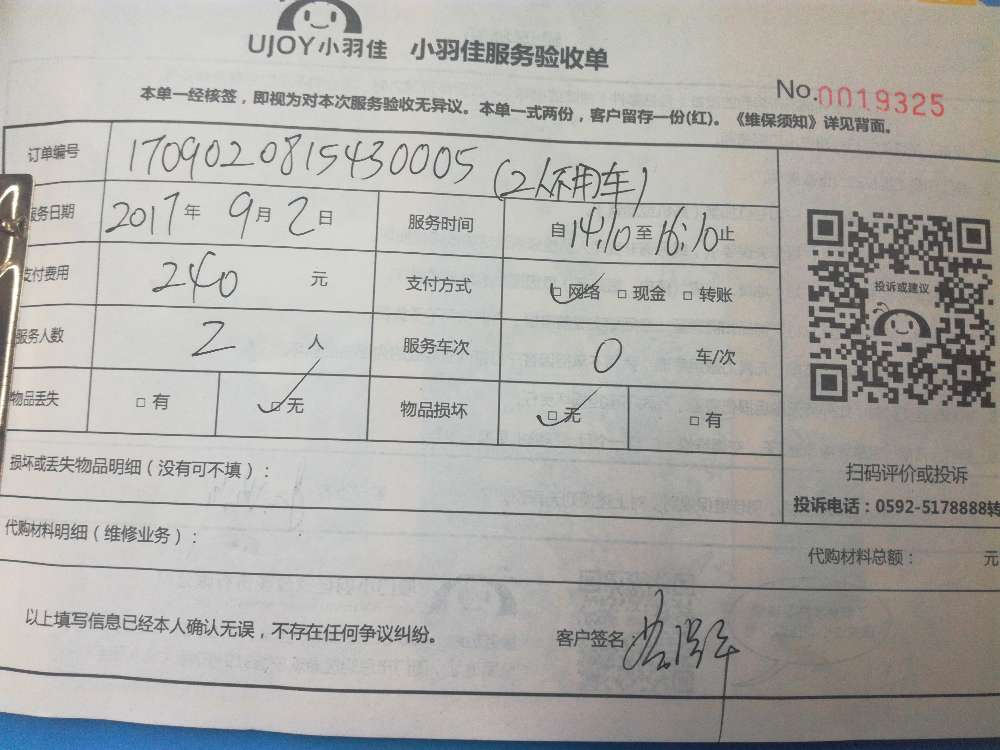 UJOY小羽佳 小羽佳服务验收单
No.0019325
本单一经核签，即视为对本次服务验收无异议。本单一式两份，客户留存一份(红)。《维保须知》详见背面。
订单编号 1709020815430005 (2人不用车)
服务日期 2017年9月2日 服务时间 自14:10至16:10止
支付费用 240元 支付方式 □网络 □现金 □转账
服务人数 2人 服务车次 0车/次
物品丢失 □有 □无 物品损坏 □无 □有
投诉或建议
损坏或丢失物品明细（没有可不填）：
扫码评价或投诉
投诉电话：0592-5178888转
代购材料明细（维修业务）： 代购材料总额： 元
以上填写信息已经本人确认无误，不存在任何争议纠纷。 客户签名